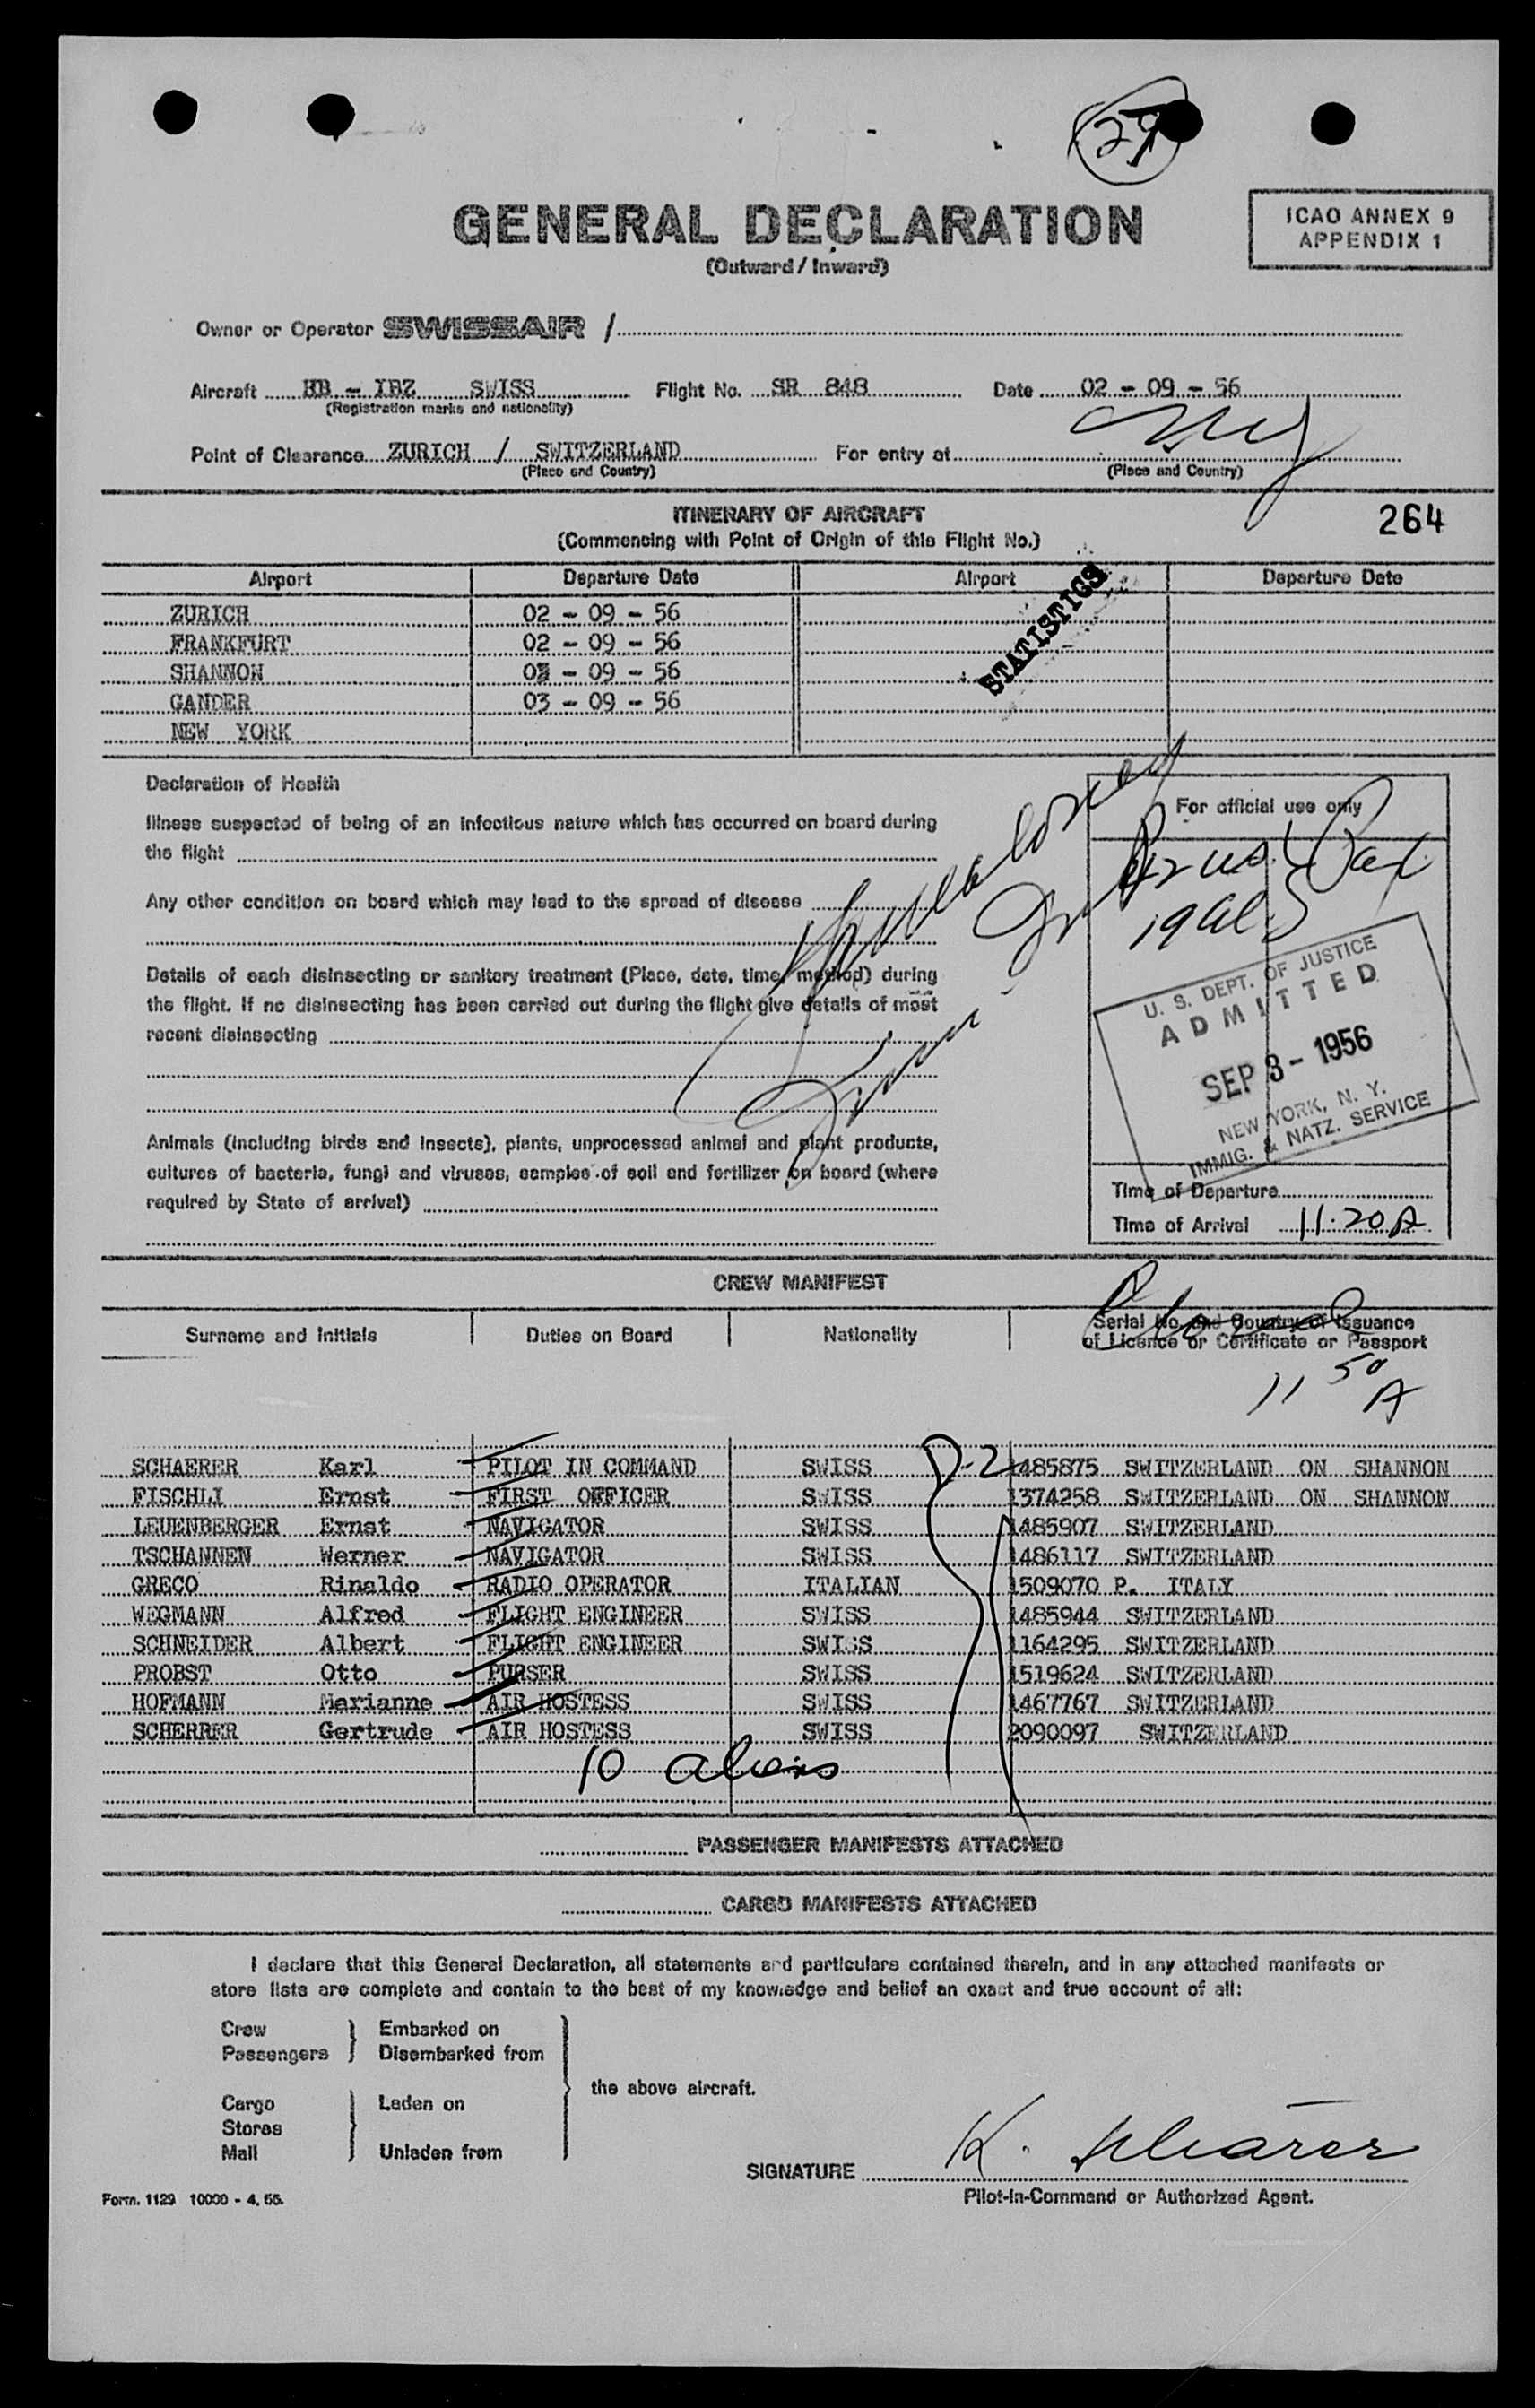 29
GENERAL DECLARATION
(Outward / Inward)
ICAO ANNEX 9
APPENDIX 1
Owner or Operator SWISSAIR /
Aircraft HB - IBZ SWISS Flight No. SR 848 Date 02 - 09 - 56
(Registration marks and nationality)
Point of Clearance ZURICH / SWITZERLAND For entry at
(Place and Country) (Place and Country)
264
ITINERARY OF AIRCRAFT
(Commencing with Point of Origin of this Flight No.)
Airport Departure Date Airport Departure Date
ZURICH 02 - 09 - 56
FRANKFURT 02 - 09 - 56
SHANNON 03 - 09 - 56
GANDER 03 - 09 - 56
NEW YORK
STATISTICS
Declaration of Health
Illness suspected of being of an infectious nature which has occurred on board during
the flight
Any other condition on board which may lead to the spread of disease
Details of each disinsecting or sanitary treatment (Place, date, time, method) during
the flight. If no disinsecting has been carried out during the flight give details of most
recent disinsecting
Animals (including birds and insects), plants, unprocessed animal and plant products,
cultures of bacteria, fungi and viruses, samples of soil and fertilizer on board (where
required by State of arrival)
For official use only
42 us. Pax
19 al
U. S. DEPT. OF JUSTICE
ADMITTED
SEP 3 - 1956
NEW YORK, N. Y.
IMMIG. & NATZ. SERVICE
Time of Departure
Time of Arrival 11.20A
CREW MANIFEST
Surname and Initials Duties on Board Nationality Serial No. and Country of Issuance
of Licence or Certificate or Passport
11 50 A
SCHAERER Karl PILOT IN COMMAND SWISS D-2 1485875 SWITZERLAND ON SHANNON
FISCHLI Ernst FIRST OFFICER SWISS 1374258 SWITZERLAND ON SHANNON
LEUENBERGER Ernst NAVIGATOR SWISS 1485907 SWITZERLAND
TSCHANNEN Werner NAVIGATOR SWISS 1486117 SWITZERLAND
GRECO Rinaldo RADIO OPERATOR ITALIAN 1509070 P. ITALY
WEGMANN Alfred FLIGHT ENGINEER SWISS 1485944 SWITZERLAND
SCHNEIDER Albert FLIGHT ENGINEER SWISS 1164295 SWITZERLAND
PROBST Otto PURSER SWISS 1519624 SWITZERLAND
HOFMANN Marianne AIR HOSTESS SWISS 1467767 SWITZERLAND
SCHERRER Gertrude AIR HOSTESS SWISS 2090097 SWITZERLAND
10 aliens
PASSENGER MANIFESTS ATTACHED
CARGO MANIFESTS ATTACHED
I declare that this General Declaration, all statements and particulars contained therein, and in any attached manifests or
store lists are complete and contain to the best of my knowledge and belief an exact and true account of all:
Crew Embarked on
Passengers Disembarked from
the above aircraft.
Cargo Laden on
Stores
Mail Unladen from
SIGNATURE K. Schärer
Pilot-in-Command or Authorized Agent.
Form. 1129 10000 - 4. 56.